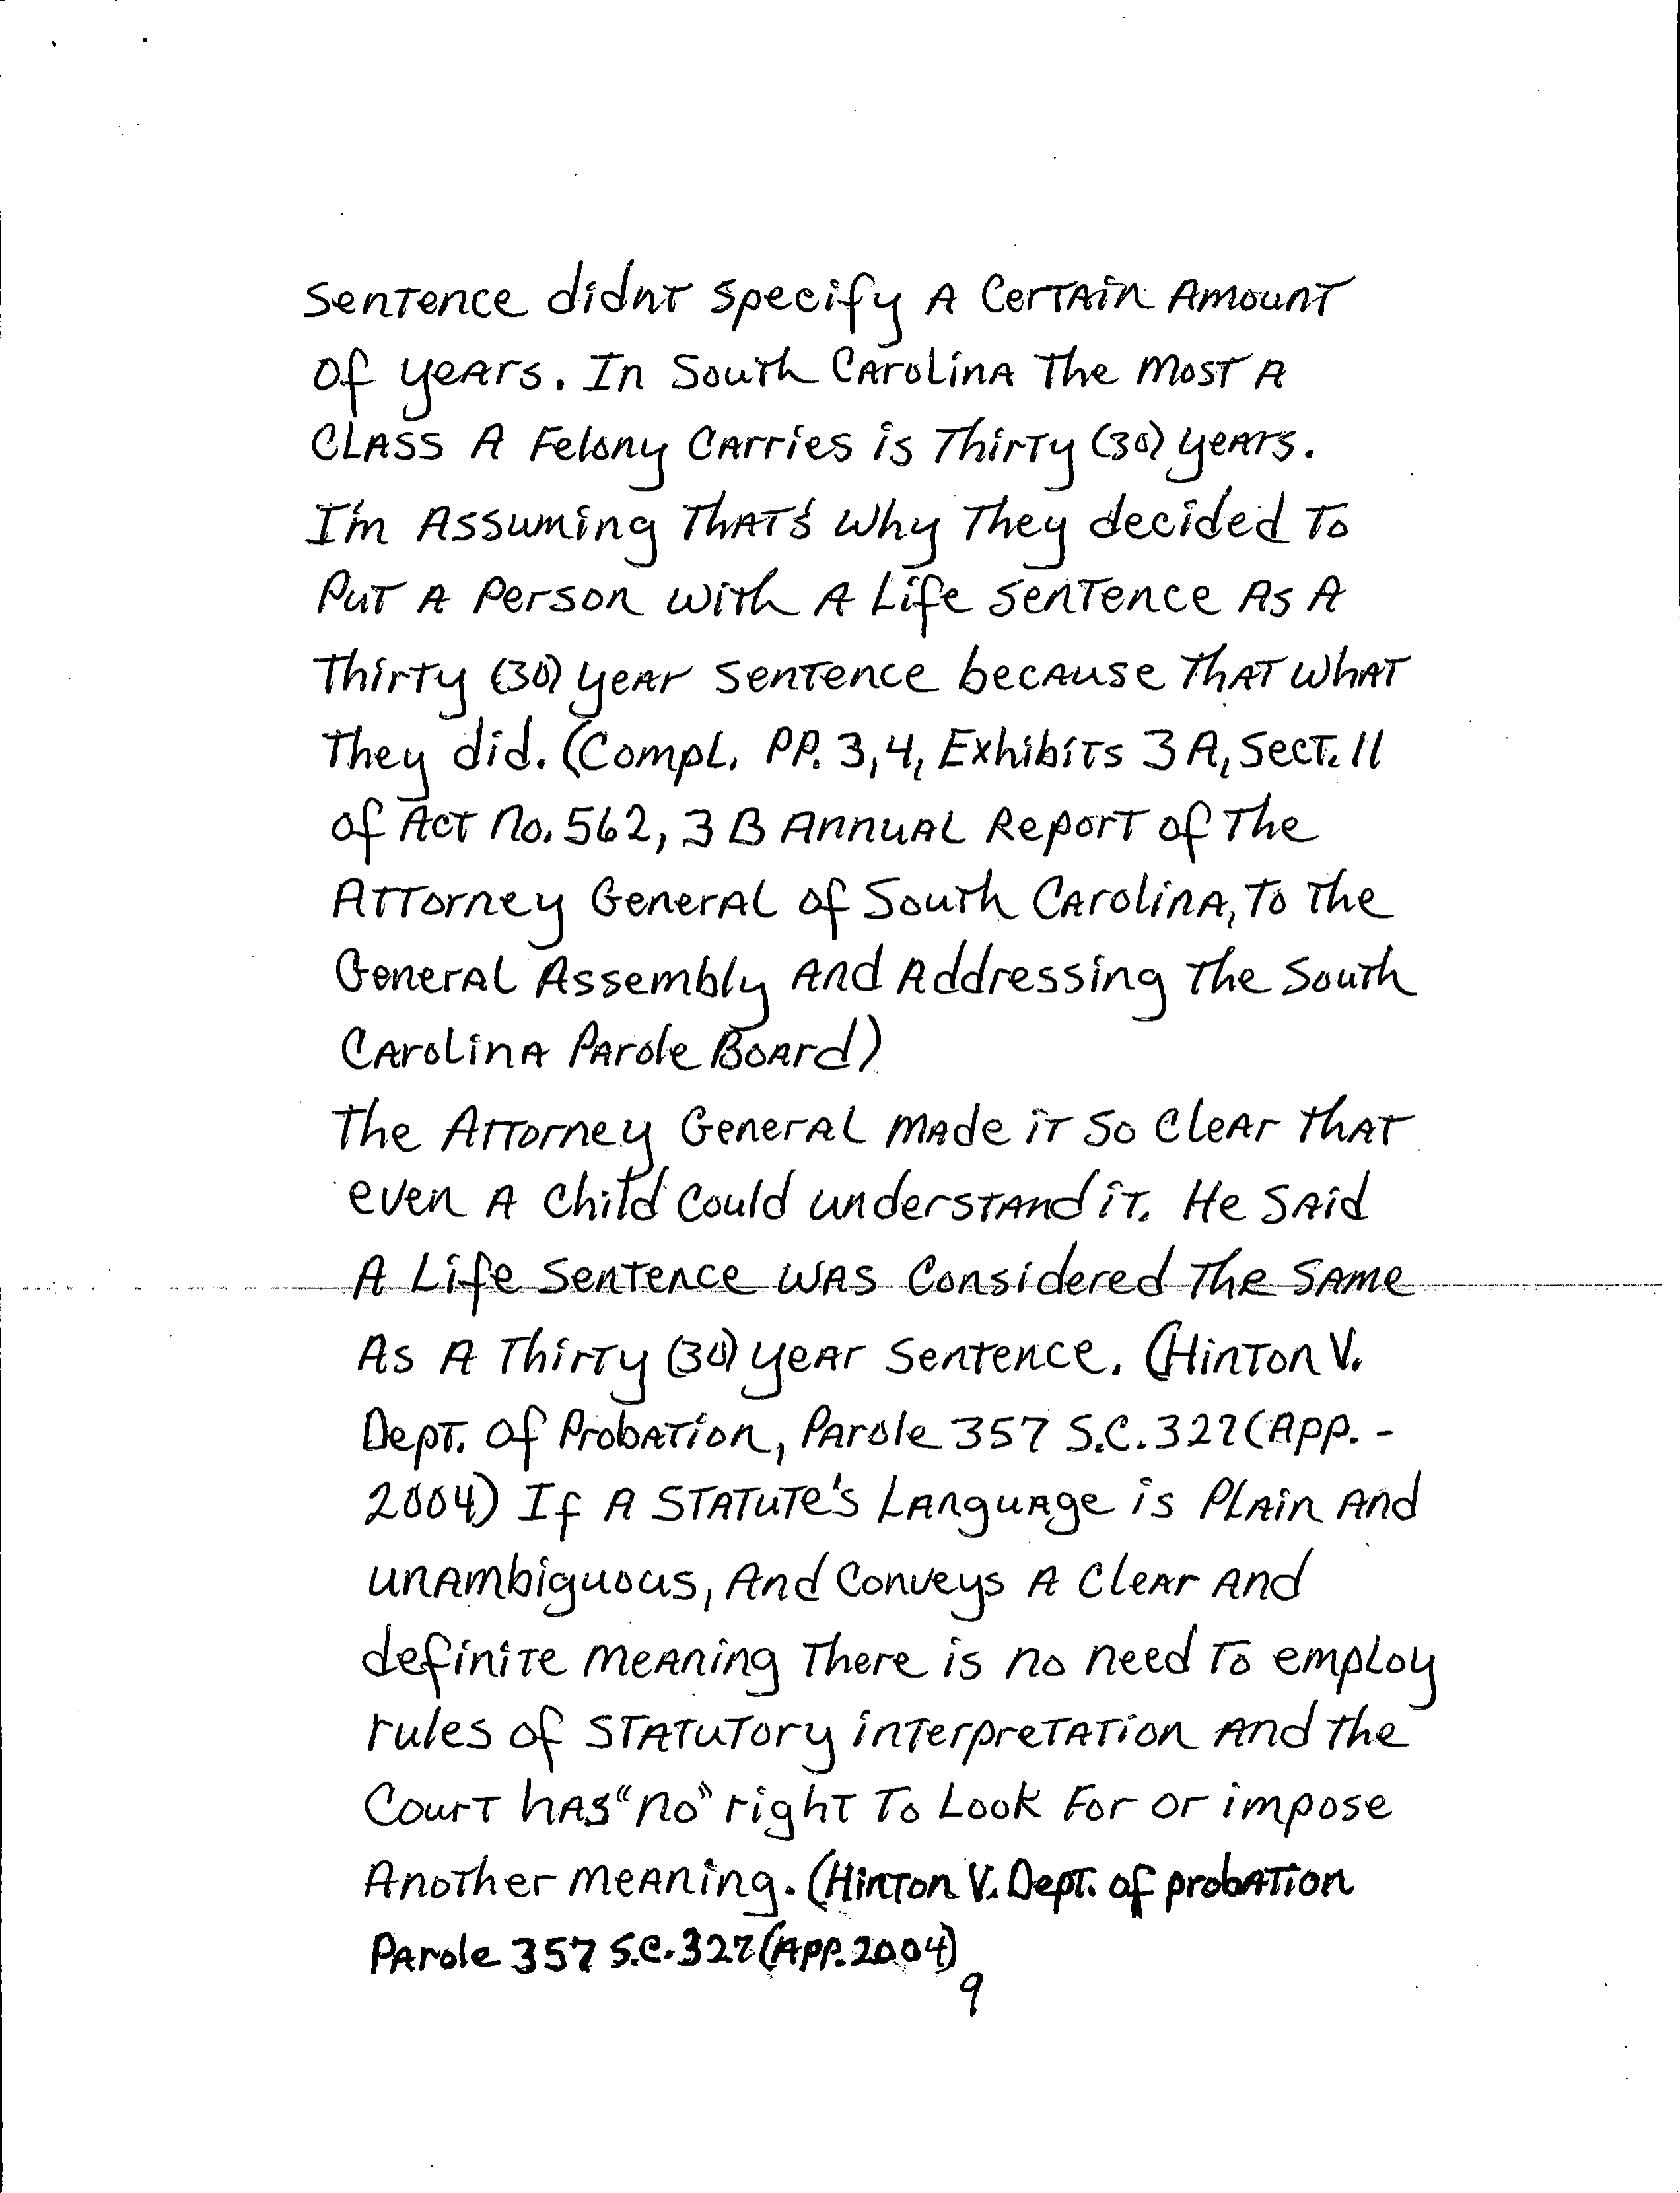 Sentence didnt specify A Certain Amount
of years. In South Carolina The most A
Class A Felony Carries is Thirty (30) years.
I'm Assuming That's why They decided To
Put A Person with A Life sentence As A
Thirty (30) year sentence because That what
They did. (Compl. PP. 3,4, Exhibits 3A, Sect. 11
of Act No. 562, 3B Annual Report of The
Attorney General of South Carolina, To The
General Assembly And Addressing The South
Carolina Parole Board)
The Attorney General made it so clear that
even A child could understand it. He said
A Life Sentence was Considered The same
As A Thirty (30) year Sentence. (Hinton V.
Dept. of Probation, Parole 357 S.C. 327 (App. -
2004) If A Statute's Language is Plain And
unambiguous, And Conveys A Clear And
definite meaning There is no need To employ
rules of Statutory interpretation And the
Court has "no" right To Look For or impose
Another meaning. (Hinton V. Dept. of probation
Parole 357 S.C. 327 (App. 2004)
9